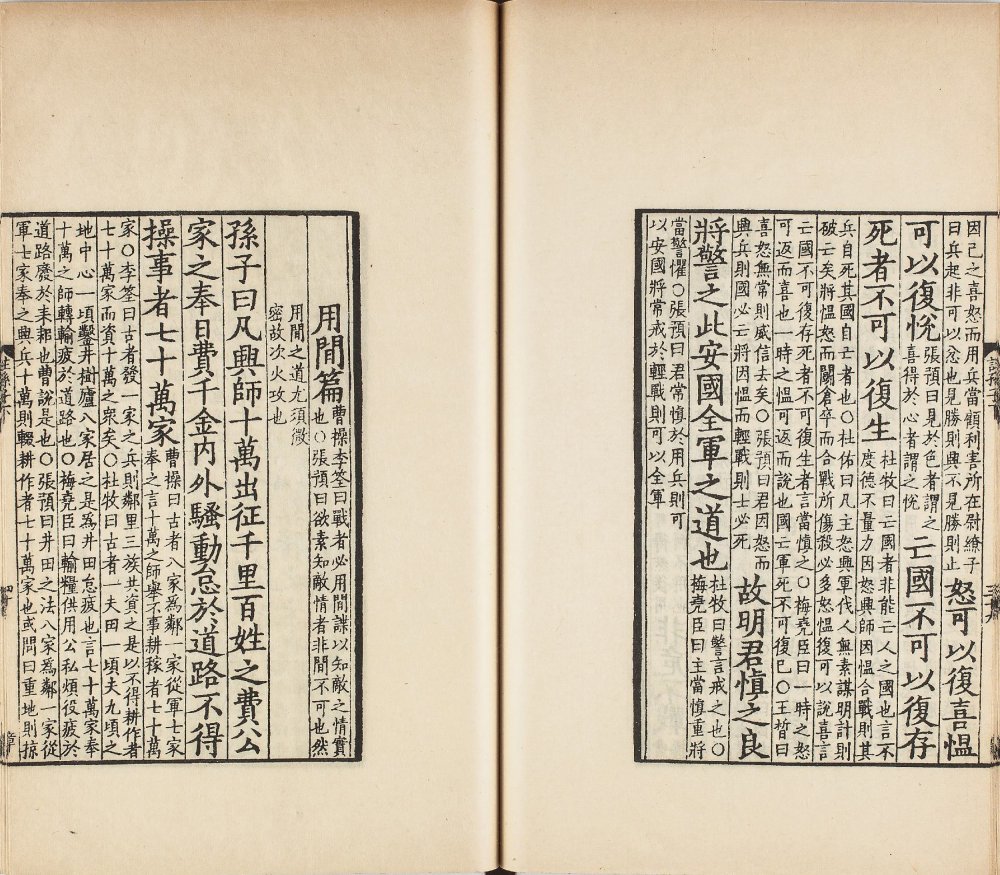 因己之喜怒而用兵當顧利害所在尉繚子
曰兵起非可以忿也見勝則興不見勝則止
怒可以復喜慍
可以復悅
張預曰見於色者謂之
喜得於心者謂之悅
亡國不可以復存
死者不可以復生
杜牧曰亡國者非能亡人之國也言不
度德不量力因怒興師因慍合戰則其
兵自死其國自亡者也○杜佑曰凡主怒興軍伐人無素謀明計則
破亡矣將慍怒而鬬倉卒而合戰所傷殺必多怒慍復可以說喜言
亡國不可復存死者不可復生者言當慎之○梅堯臣曰一時之怒
可返而喜也一時之慍可返而說也國亡軍死不可復已○王晳曰
喜怒無常則威信去矣○張預曰君因怒而
興兵則國必亡將因慍而輕戰則士必死
故明君慎之良
將警之此安國全軍之道也
杜牧曰警言戒之也○
梅堯臣曰主當慎重將
當警懼○張預曰君常慎於用兵則可
以安國將常戒於輕戰則可以全軍
用間篇
曹操李筌曰戰者必用間諜以知敵之情實
也○張預曰欲素知敵情者非間不可也然
用間之道尤須微
密故次火攻也
孫子曰凡興師十萬出征千里百姓之費公
家之奉日費千金内外騷動怠於道路不得
操事者七十萬家
曹操曰古者八家爲鄰一家從軍七家
奉之言十萬之師舉不事耕稼者七十萬
家○李筌曰古者發一家之兵則鄰里三族共資之是以不得耕作者
七十萬家而資十萬之衆矣○杜牧曰古者一夫田一頃夫九頃之
地中心一頃鑿井樹廬八家居之是爲井田怠疲也言七十萬家奉
十萬之師轉輸疲於道路也○梅堯臣曰輸糧供用公私煩役疲於
道路廢於耒耜也曹說是也○張預曰井田之法八家爲鄰一家從
軍七家奉之興兵十萬則輟耕作者七十萬家也或問曰重地則掠